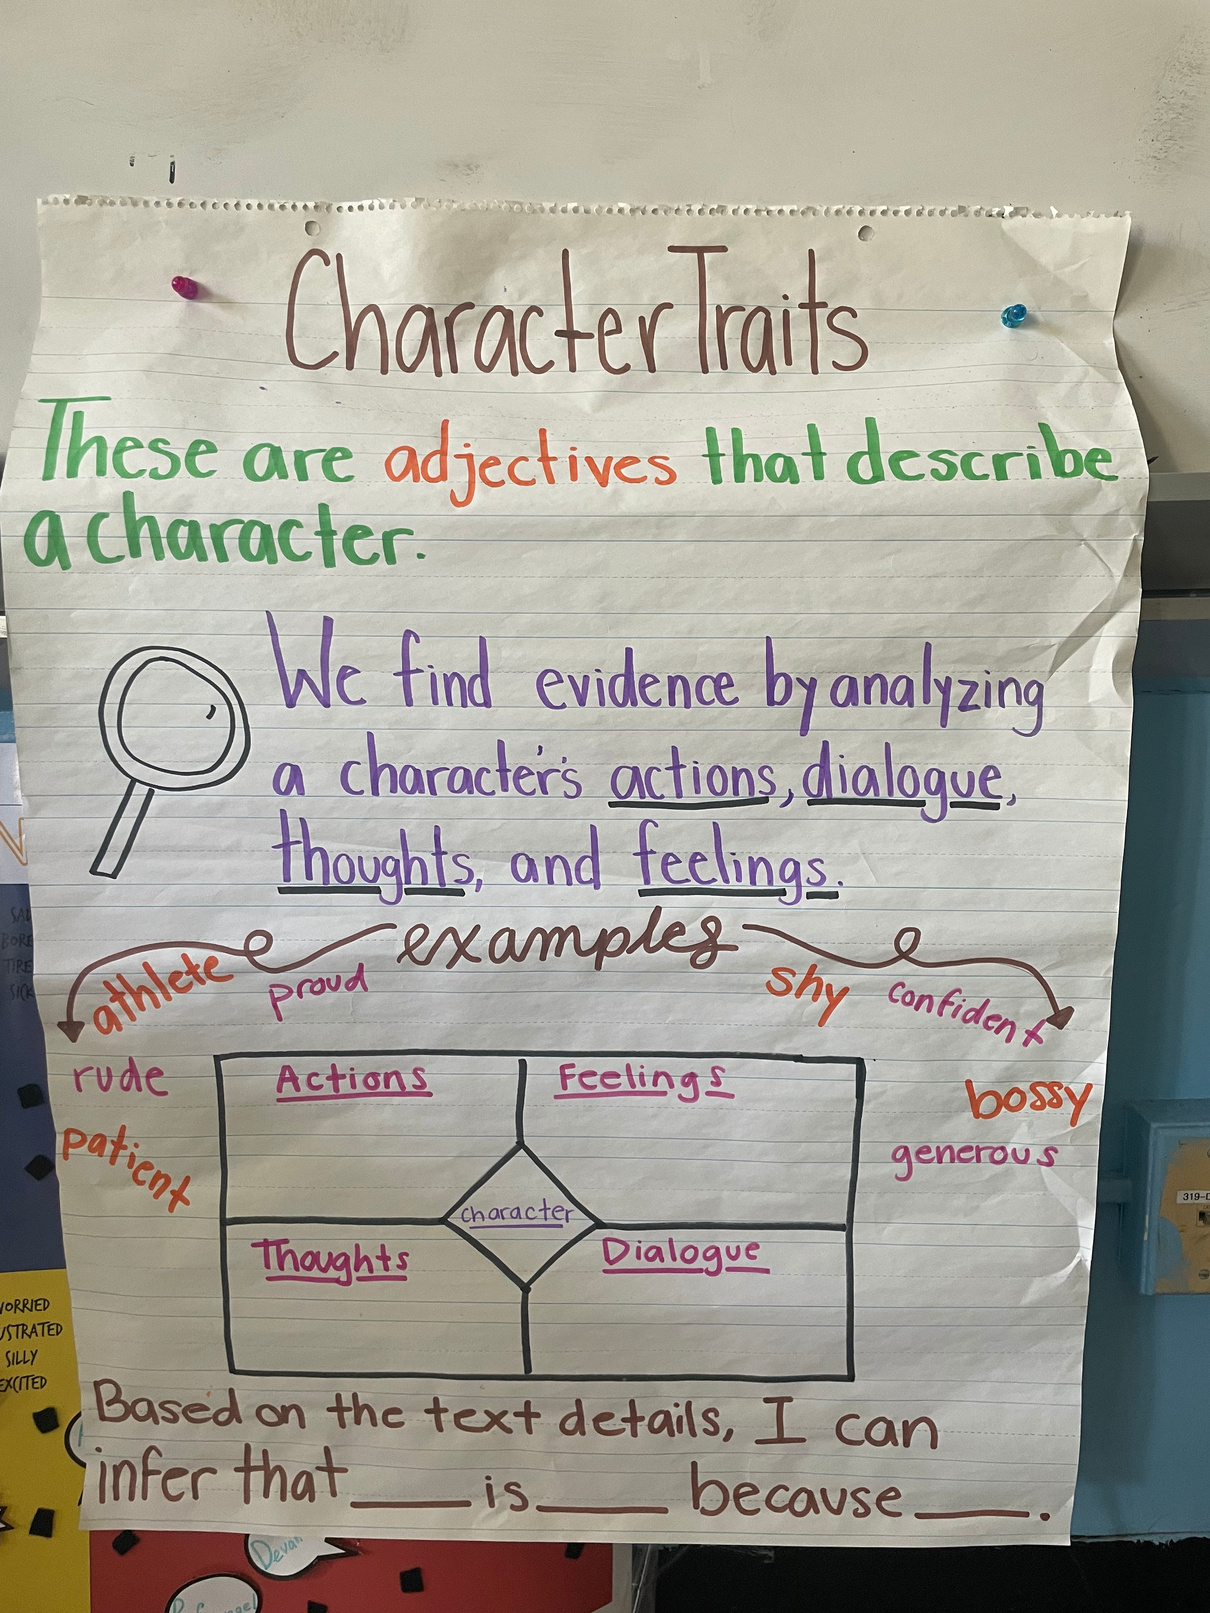 Character Traits
These are adjectives that describe
a character.
We find evidence by analyzing
a character's actions, dialogue,
thoughts, and feelings.
examples
athlete proud shy confident
rude
patient
bossy
generous
Actions Feelings
character
Thoughts Dialogue
Based on the text details, I can
infer that ____ is ____ because ____.
SILLY
319-D
Devan